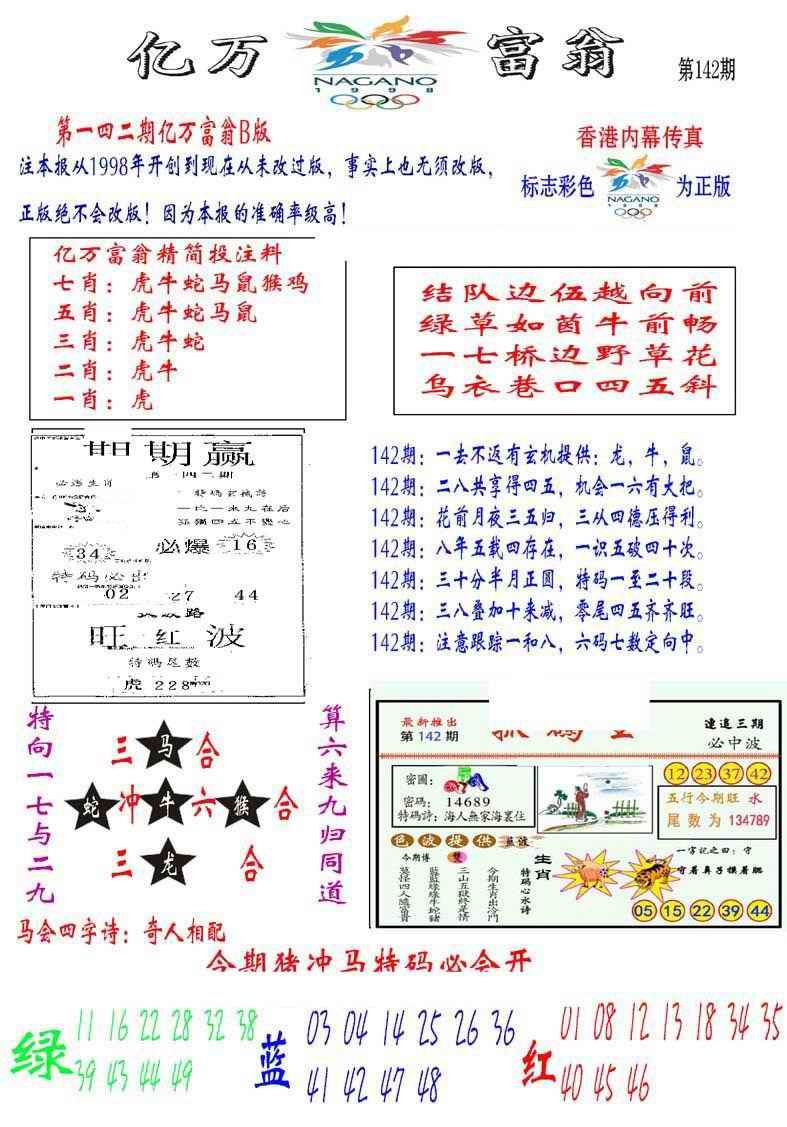 亿万
NAGANO
1998
富翁
第142期
第一四二期亿万富翁B版
注本报从1998年开创到现在从未改过版，事实上也无须改版，
正版绝不会改版！因为本报的准确率级高！
香港内幕传真
标志彩色
NAGANO
1998
为正版
亿万富翁精简投注料
七肖：虎牛蛇马鼠猴鸡
五肖：虎牛蛇马鼠
三肖：虎牛蛇
二肖：虎牛
一肖：虎
结队边伍越向前
绿草如茵牛前畅
一七桥边野草花
乌衣巷口四五斜
期赢
必爆
34
16
特码必出
02 27 44
旺红波
特码尾数
虎228
142期：一去不返有玄机提供：龙，牛，鼠。
142期：二八共享得四五，机会一六有大把。
142期：花前月夜三五归，三从四德压得利。
142期：八年五载四存在，一识五破四十次。
142期：三十分半月正圆，特码一至二十段。
142期：三八叠加十来减，零尾四五齐齐旺。
142期：注意跟踪一和八，六码七数定向中。
特向一七与二九
三马合
蛇冲牛六猴合
三龙合
算六来九归同道
马会四字诗：奇人相配
最新推出
第142期
連追三期
必中波
密圖：
密碼：14689
特碼詩：海人無家海裏住
12 23 37 42
五行今期旺 水
尾数为 134789
色波提供 藍波
今期博 雙
三山五獄終是情
今期生肖出冷門
特碼心水诗
生肖
一字記之曰：守
守着鼻子摸着腮
05 15 22 39 44
今期猪冲马特码必会开
绿
11 16 22 28 32 38
39 43 44 49
蓝
03 04 14 25 26 36
41 42 47 48
红
01 08 12 13 18 34 35
40 45 46